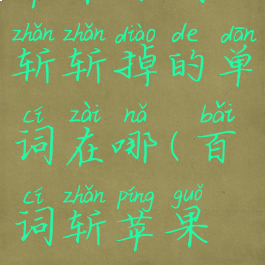 zhǎn zhǎn diào de dān
斩斩掉的单
cí zài nǎ bǎi
词在哪(百
cí zhǎn píng guǒ
词斩苹果